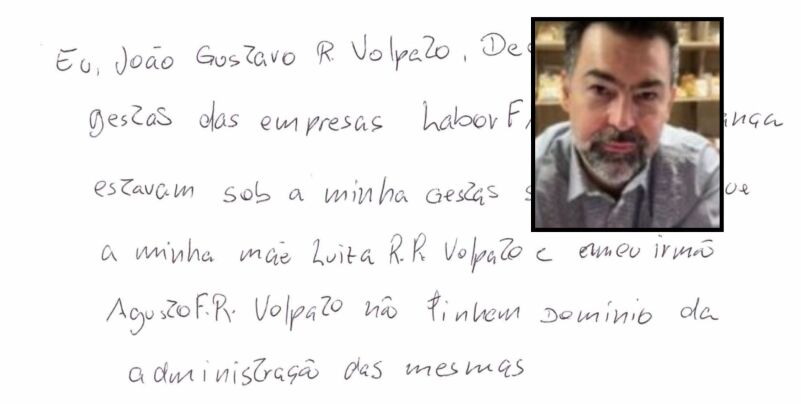 Eu, João Gustavo R. Volpato, De
gestas das empresas LaborF
ança
estavam sob a minha Gestas s
ue
a minha mãe Luiza R.R. Volpato e o meu irmão
AgustoF.R. Volpato não tinham Domínio da
administração das mesmas